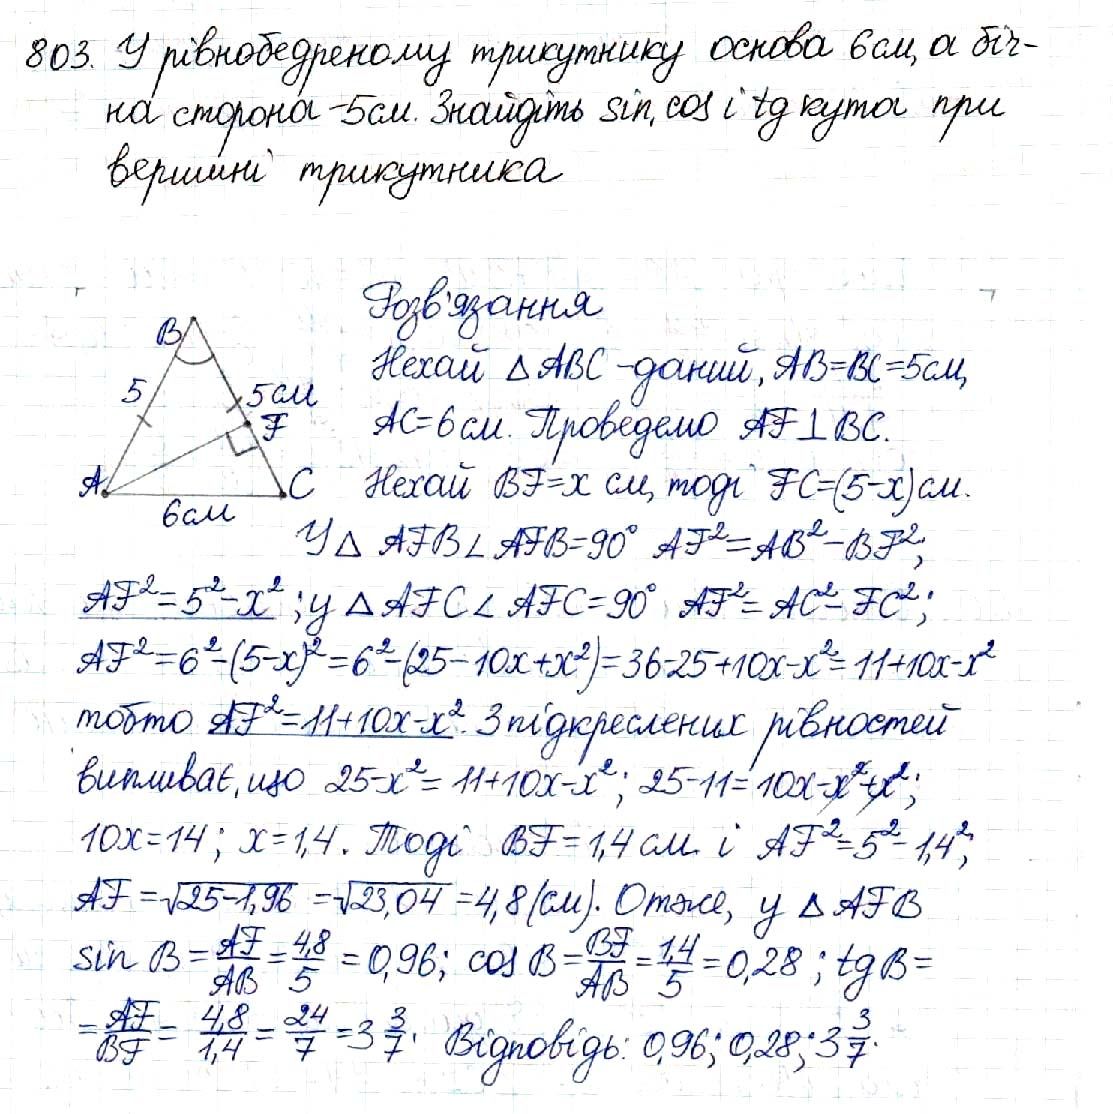 803. У рівнобедреному трикутнику основа 6см, а біч-
на сторона -5см. Знайдіть sin, cos і tg кута при
вершині трикутника
Розв'язання
B
5
5см
F
A
C
6см
Нехай △ ABC -даний, AB=BC=5см,
AC=6см. Проведемо AF⊥BC.
Нехай BF=x см, тоді FC=(5-x)см.
У △ AFB ∠ AFB=90° AF²=AB²-BF²;
AF²=5²-x²; у △ AFC ∠ AFC=90° AF²=AC²-FC²;
AF²=6²-(5-x)²=6²-(25-10x+x²)=36-25+10x-x²=11+10x-x²
тобто AF²=11+10x-x². З підкреслених рівностей
випливає, що 25-x²=11+10x-x²; 25-11=10x-x²+x²;
10x=14; x=1,4. Тоді BF=1,4см. і AF²=5²-1,4²;
AF=√25-1,96=√23,04=4,8(см). Отже, у △ AFB
sin B=AF/AB=4,8/5=0,96; cos B=BF/AB=1,4/5=0,28; tg B=
=AF/BF=4,8/1,4=24/7=3 3/7. Відповідь: 0,96; 0,28; 3 3/7.